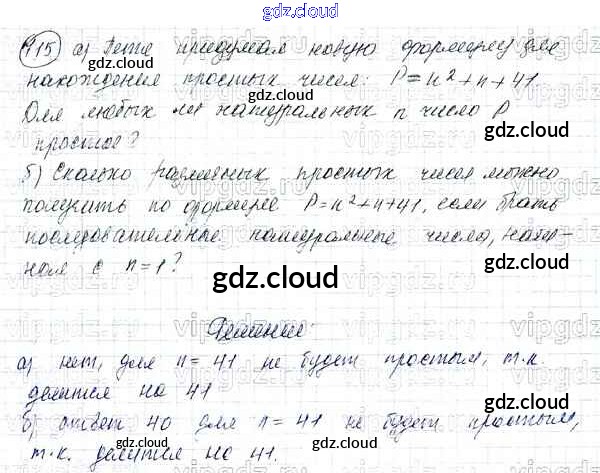 gdz.cloud
915) а) Петя придумал новую формулу для
нахождения простых чисел: P=n²+n+41
Для любых ли натуральных n число P
простое?
б) Сколько различных простых чисел можно
получить по формуле P=n²+n+41, если брать
последовательные натуральные числа, начи-
ная с n=1?
Решение:
а) нет, для n=41 не будет простым, т.к.
делится на 41
б) ответ 40 для n=41 не будет простым,
т.к. делится на 41.